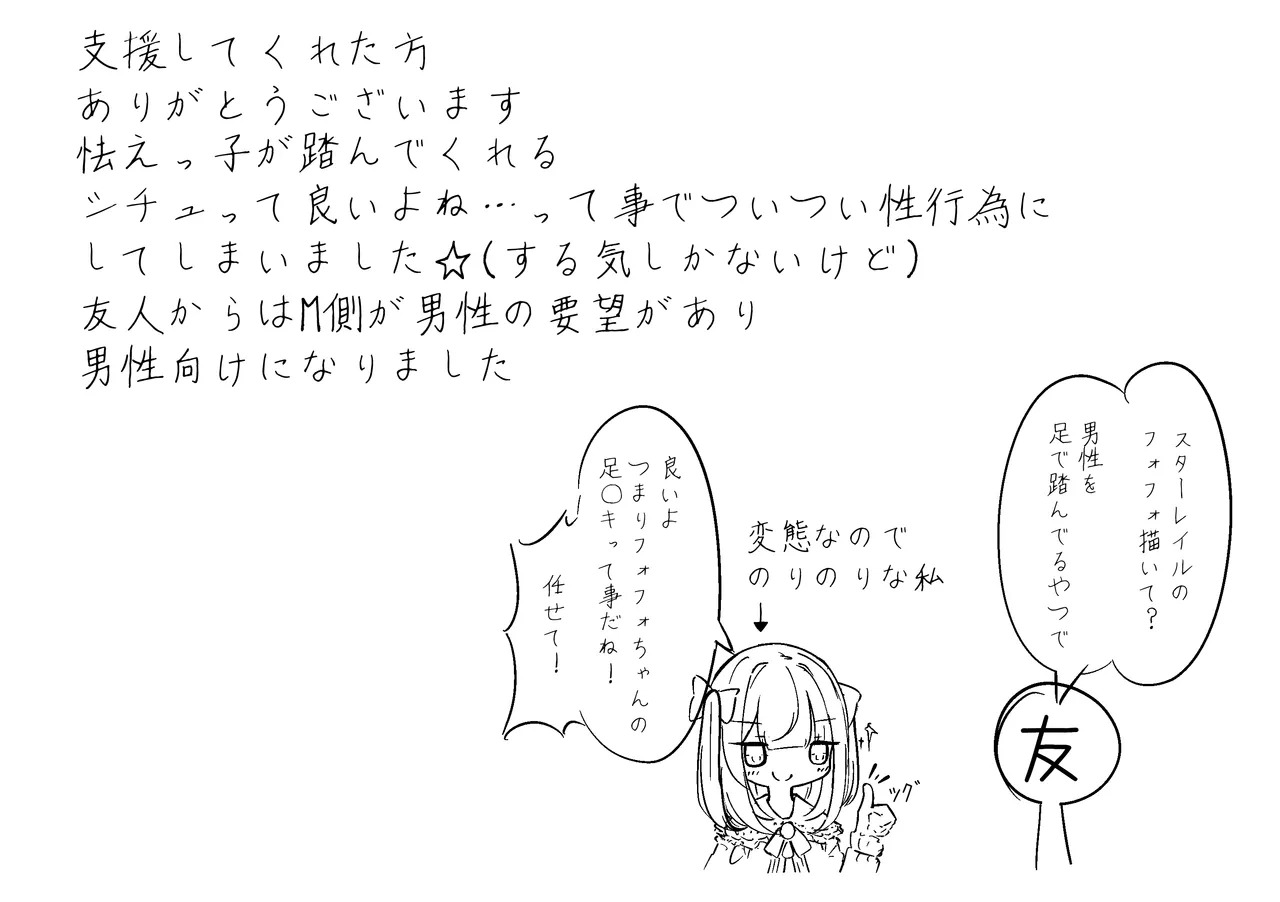 支援してくれた方
ありがとうございます
怯えっ子が踏んでくれる
シチュって良いよね…って事でついつい性行為に
してしまいました☆(する気しかないけど)
友人からはM側が男性の要望があり
男性向けになりました
スターレイルの
フォフォ描いて？
男性を
足で踏んでるやつで
友
変態なので
のりのりな私
良いよ
つまりフォフォちゃんの
足〇キって事だね！
任せて！
ツグ